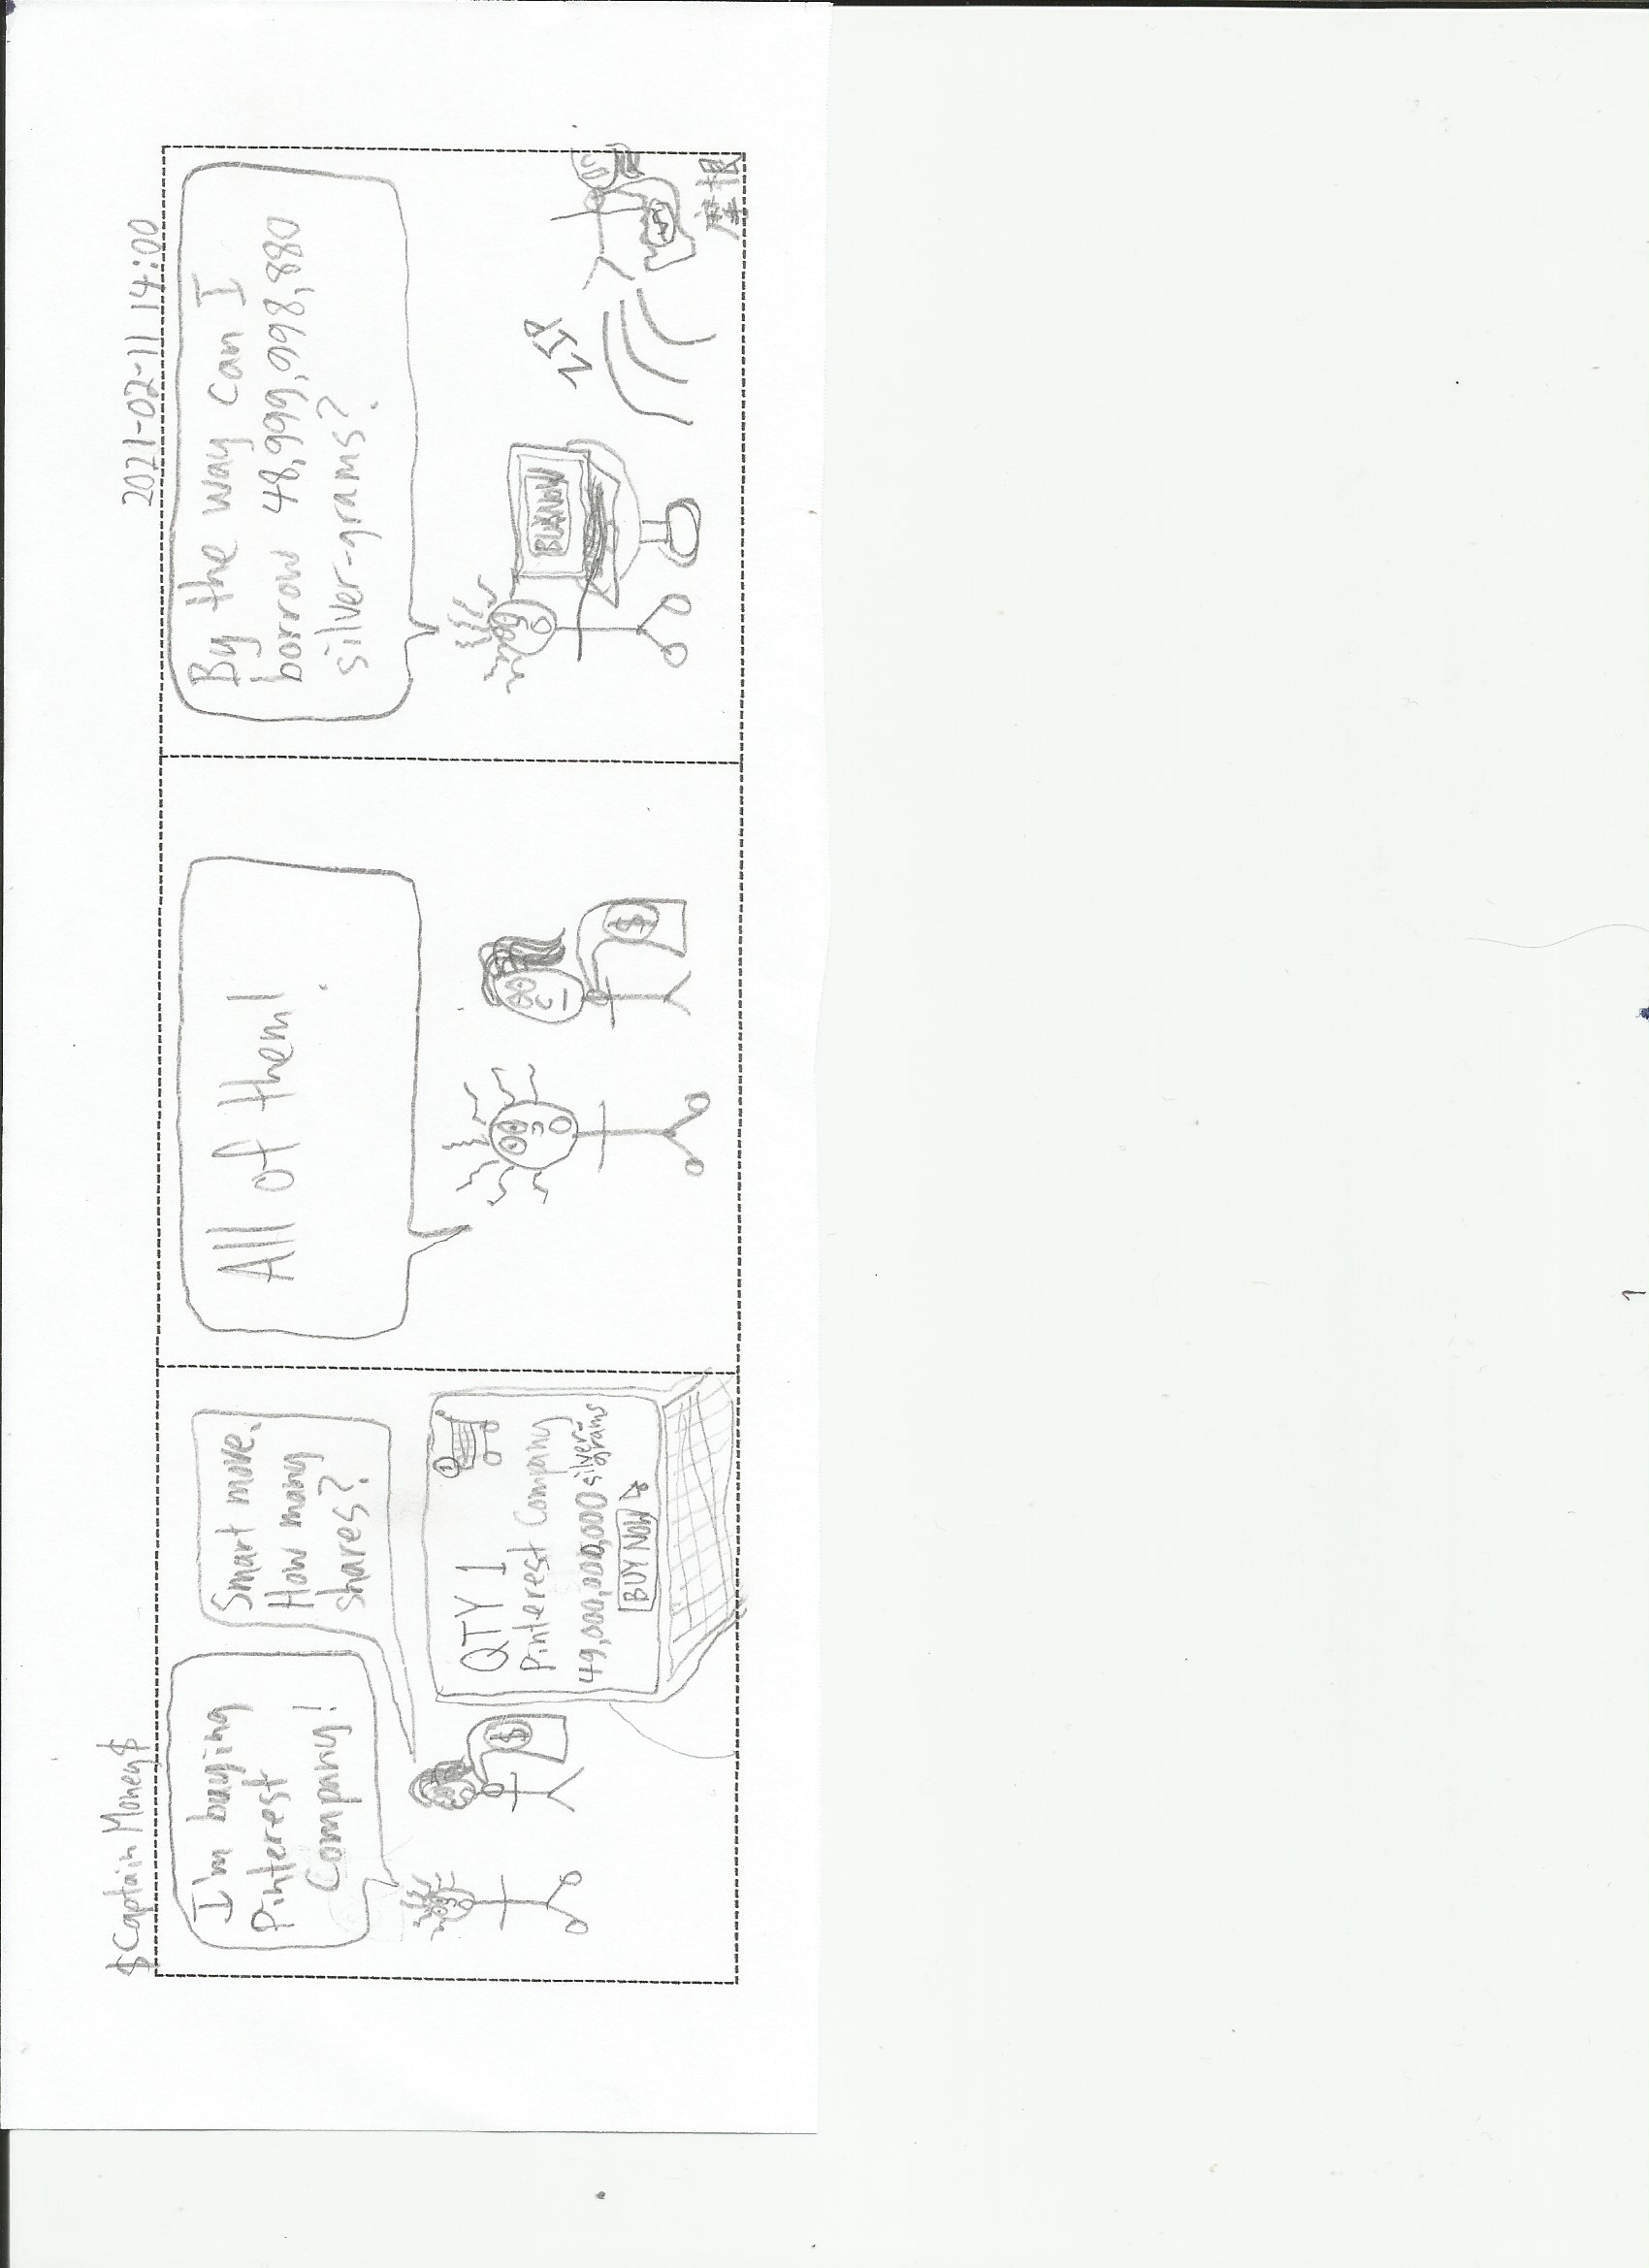 $Captain Money$
2021-02-11 14:00
I'm buying
Pinterest
Company!
Smart move.
How many
shares?
$
1
QTY 1
Pinterest Company
49,000,000,000 silver-
grams
BUY NOW
All of them!
$
By the way can I
borrow 48,999,998,880
silver-grams?
BUY NOW
$
摩根
1